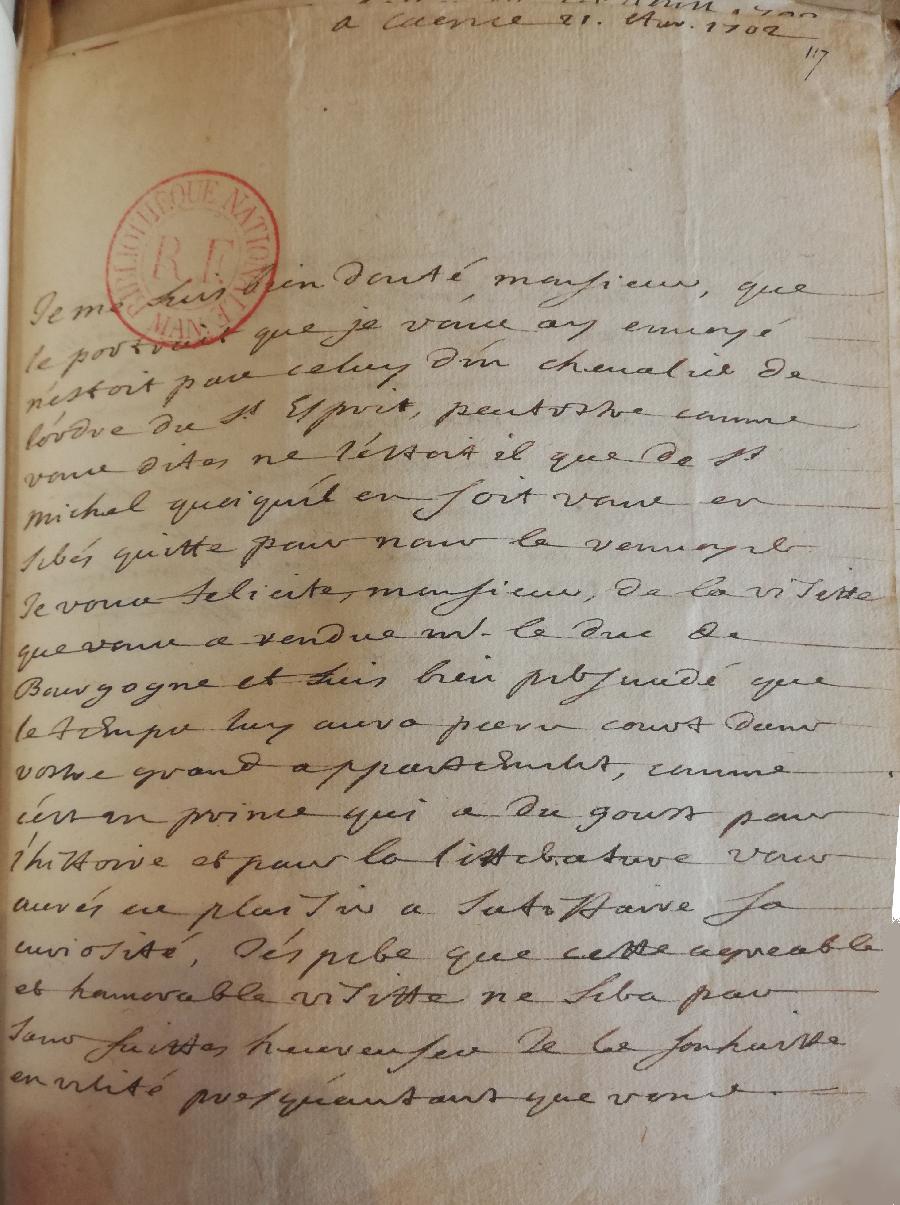 a Caen ce 21. Avr. 1702
117
BIBLIOTHÈQUE NATIONALE MAN
R F
Je me suis bien douté monsieur, que
le portrait que je vous ay envoyé
n'estoit pas celuy d'un chevalier de
l'ordre du St Esprit, peutestre comme
vous dites ne l'estoit il que de St
Michel quoiqu'il en soit vous en
serés quitte pour nous le renvoyer
Je vous felicite, monsieur, de la visitte
que vous a rendue mr. le duc de
Bourgogne et suis bien persuadé que
le temps luy aura paru court dans
vostre grand appartement, comme
c'est un prince qui a du goust pour
l'histoire et pour la litterature vous
aurés eu plaisir a satisfaire sa
curiosité, J'éspere que cette agreable
et honorable visitte ne sera pas
sans suittes heureuses Je le souhaitte
en verité presqu'autant que vous.